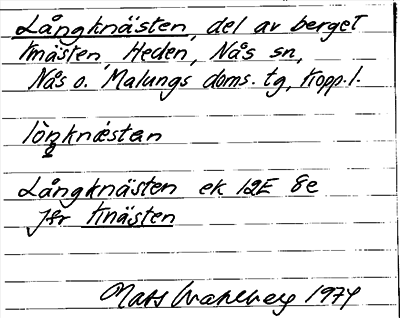 Långknästen, del av berget
Knästen, Heden, Nås sn,
Nås o. Malungs doms. tg, Kopp. l.
lòŋknästan
Långknästen ek 12E 8e
jfr Knästen
Mats Wahlberg 1974